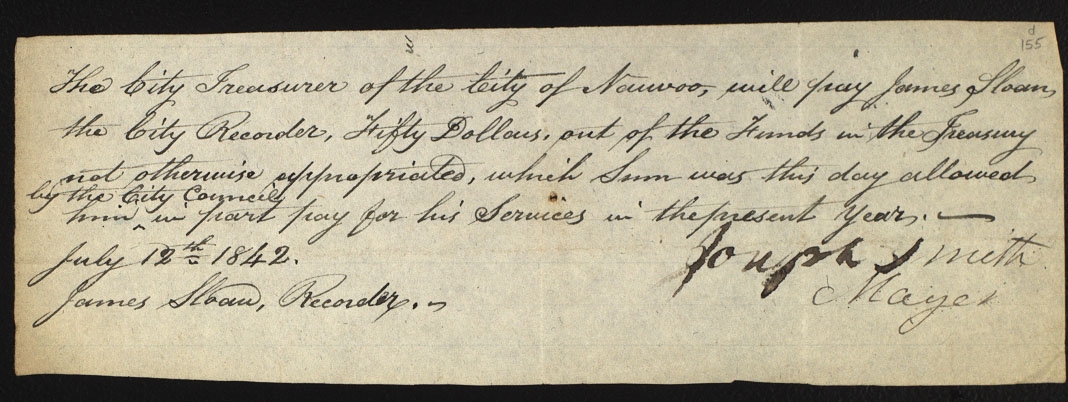 d
155
The City Treasurer of the City of Nauvoo, will pay James Sloan,
the City Recorder, Fifty Dollars, out of the Funds in the Treasury
not otherwise appropriated, which Sum was this day allowed
by the City Council
him ^ in part pay for his Services in the present Year. —
July 12th 1842.
Joseph Smith
Mayor
James Sloan, Recorder.